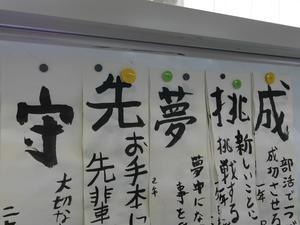 成
部活でつ
成功させる
一年
挑
新しいことに
挑戦する
夢
夢中にな
事を
二年
先
お手本に
先輩
守
大切な
二年